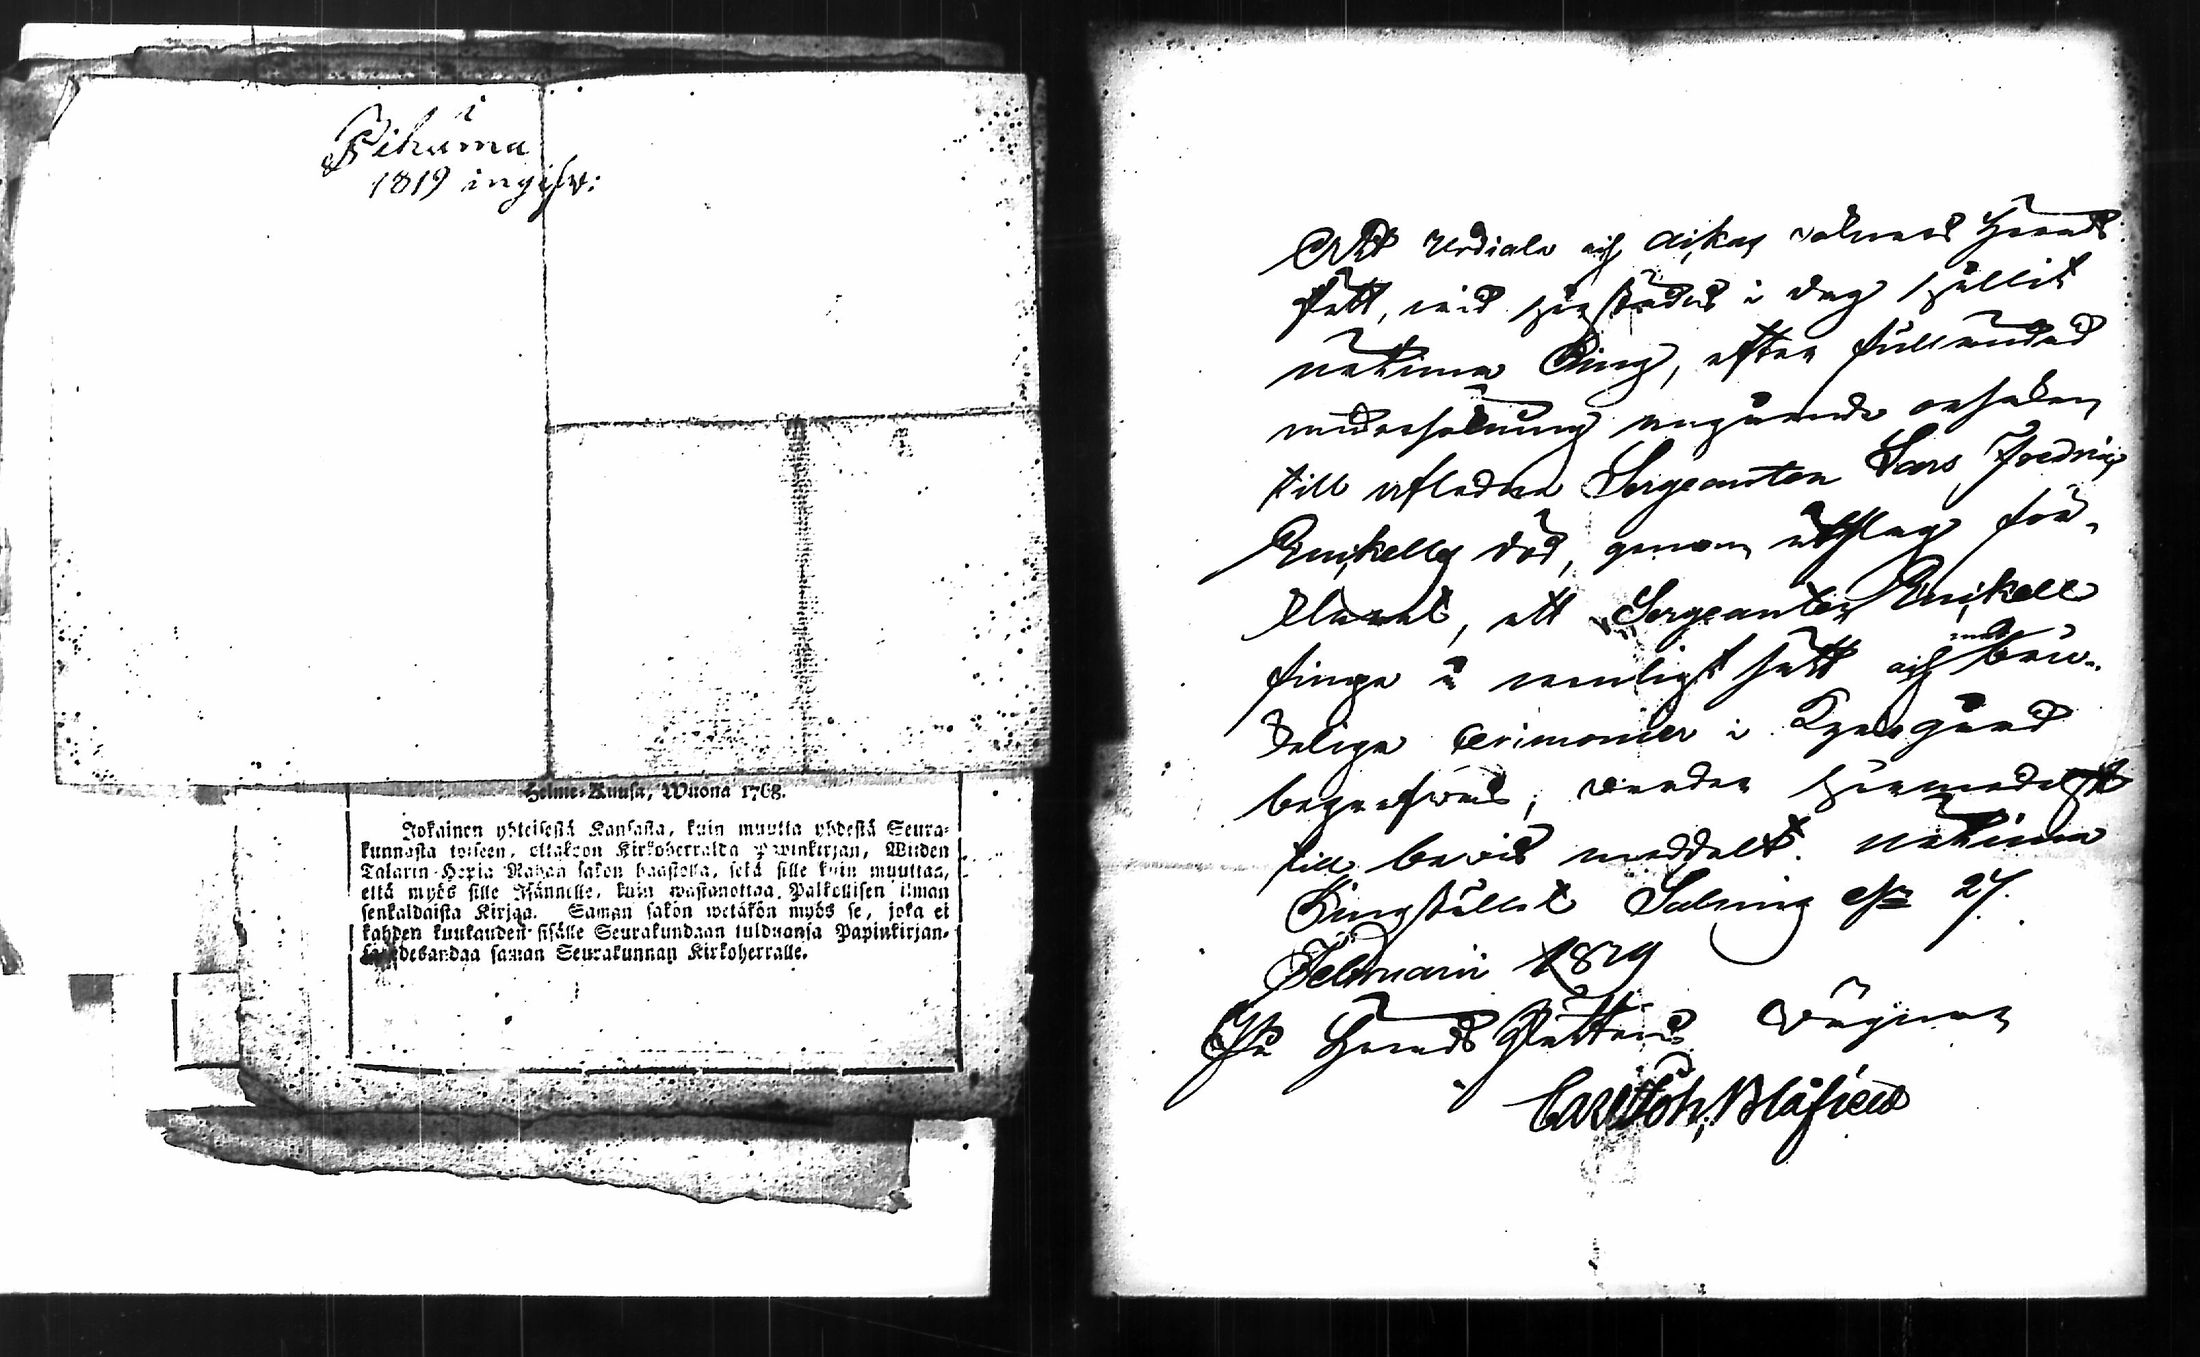 i
1819
Helme-Kuusa, Wuona 1768.
Jokainen yhteisestä Kansasta, kuin muutta yhdestä Seura-
kunnasta toiseen, ottakoon Kirkoherralda Papinkirjan, Wiiden
Talarin Hopia Rahan sakon haastolla, sekä sille kuin muuttaa,
että myös sille Isännelle, kuin wastanottaa Palkollisen ilman
senkaldaista Kirjaa. Saman sakon wetäkön myös se, joka ei
kahden kuukauden sisälle Seurakundaan tulduansa Papinkirjan-
sa saman Seurakunnan Kirkoherralle.
Att Urdiala och Akkas sokners Härads
Rätt, vid härstädes i dag hållit
Ting, efter fulländad
undersökning angående orsaken
till afledne Sergeanten Lars Fredric
Enckells död, genom utslag för-
klarat, att Sergeanten Enckell
finge å vanligt sätt och med bru-
kelige Cerimonier i Kyrkogård
begrafvas, varder härmedelst
till bevis meddelt.
Tingstället Salmis den 27.
Februarii 1819
På Härads Rättens vägnar
Carl Joh.